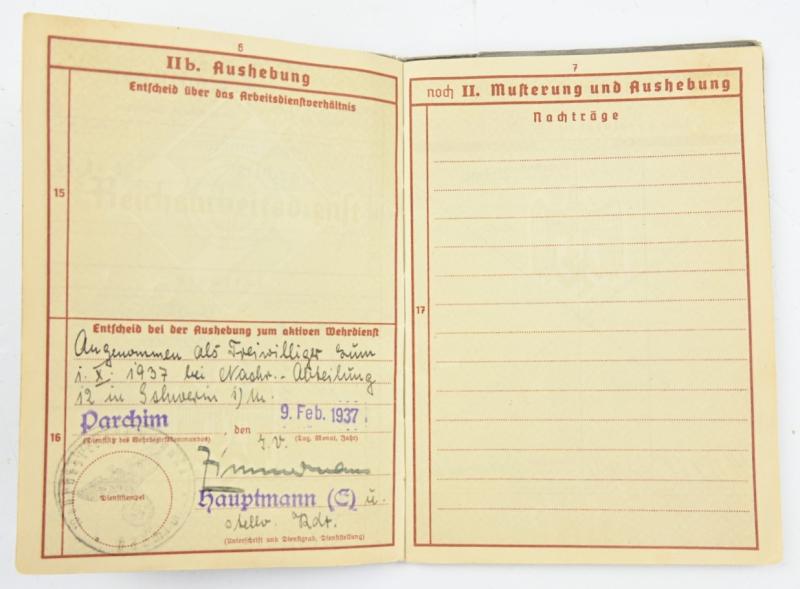 6
IIb. Aushebung
Entscheid über das Arbeitsdienstverhältnis
15
Entscheid bei der Aushebung zum aktiven Wehrdienst
Angenommen als Freiwilliger zum
1. X. 1937 bei Nachr.-Abteilung
12 in Schwerin i/M.
Parchim, den 9. Feb. 1937
(Dienstsitz des Wehrbezirkskommandos) (Tag, Monat, Jahr)
16
I.V.
Zimmermann
Dienststempel
Hauptmann (E) u.
stellv. Kdr.
(Unterschrift und Dienstgrad, Dienststellung)
7
noch II. Musterung und Aushebung
Nachträge
17